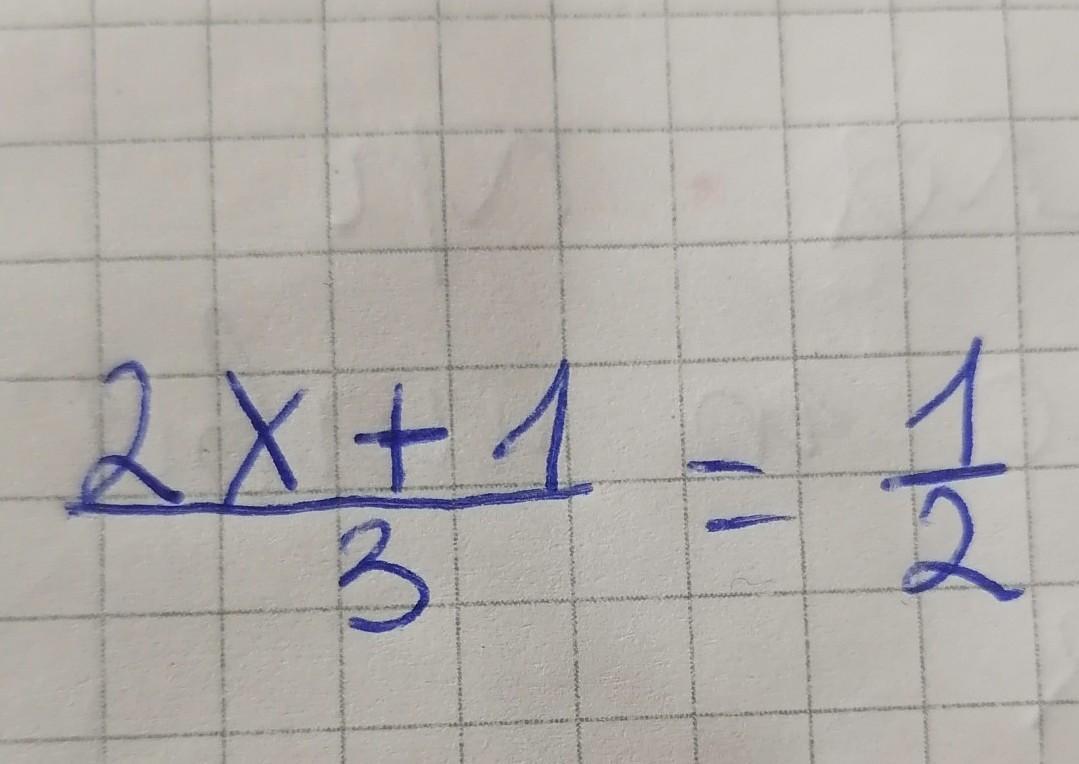 2x + 1 / 3 = 1 / 2